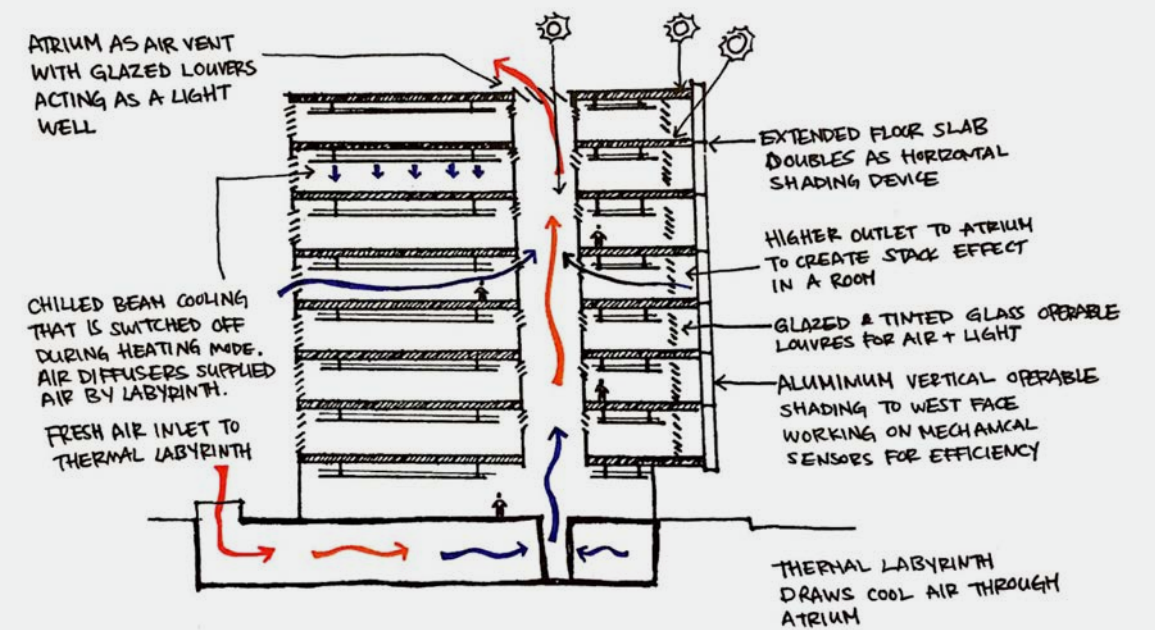 ATRIUM AS AIR VENT
WITH GLAZED LOUVERS
ACTING AS A LIGHT
WELL
CHILLED BEAM COOLING
THAT IS SWITCHED OFF
DURING HEATING MODE.
AIR DIFFUSERS SUPPLIED
AIR BY LABYRINTH.
FRESH AIR INLET TO
THERMAL LABYRINTH
EXTENDED FLOOR SLAB
DOUBLES AS HORIZONTAL
SHADING DEVICE
HIGHER OUTLET TO ATRIUM
TO CREATE STACK EFFECT
IN A ROOM
GLAZED & TINTED GLASS OPERABLE
LOUVRES FOR AIR + LIGHT
ALUMINIUM VERTICAL OPERABLE
SHADING TO WEST FACE
WORKING ON MECHANICAL
SENSORS FOR EFFICIENCY
THERMAL LABYRINTH
DRAWS COOL AIR THROUGH
ATRIUM